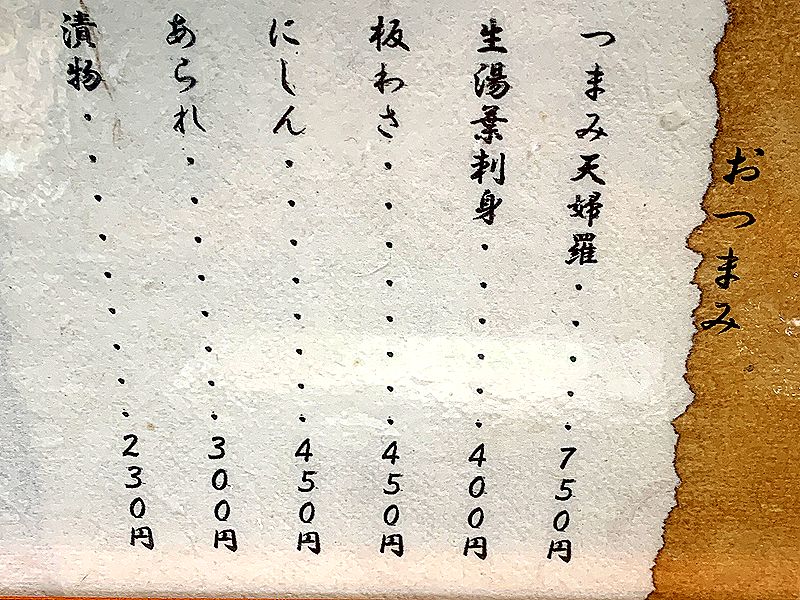 おつまみ
つまみ天婦羅・・・・・750円
生湯葉刺身・・・・・・400円
板わさ・・・・・・・・450円
にしん・・・・・・・・450円
あられ・・・・・・・・300円
漬物・・・・・・・・・230円